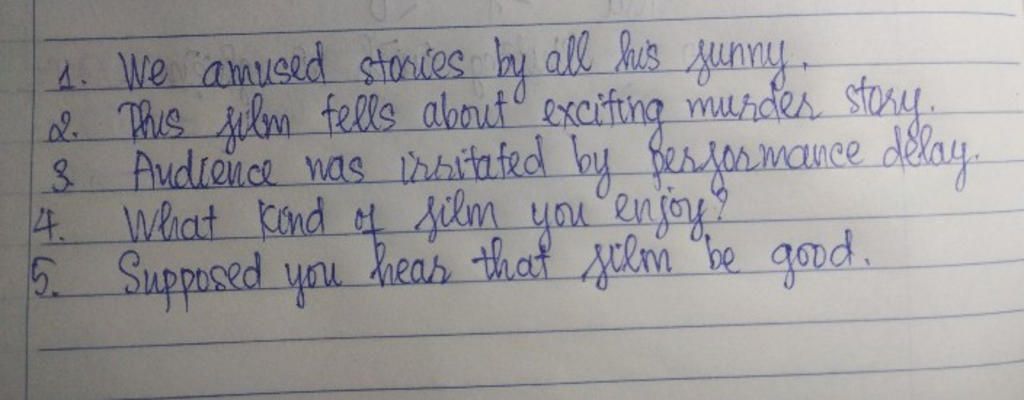 1. We amused stories by all his funny.
2. This film tells about exciting murder story.
3 Audience was irritated by performance delay.
4. What kind of film you enjoy?
5. Supposed you hear that film be good.